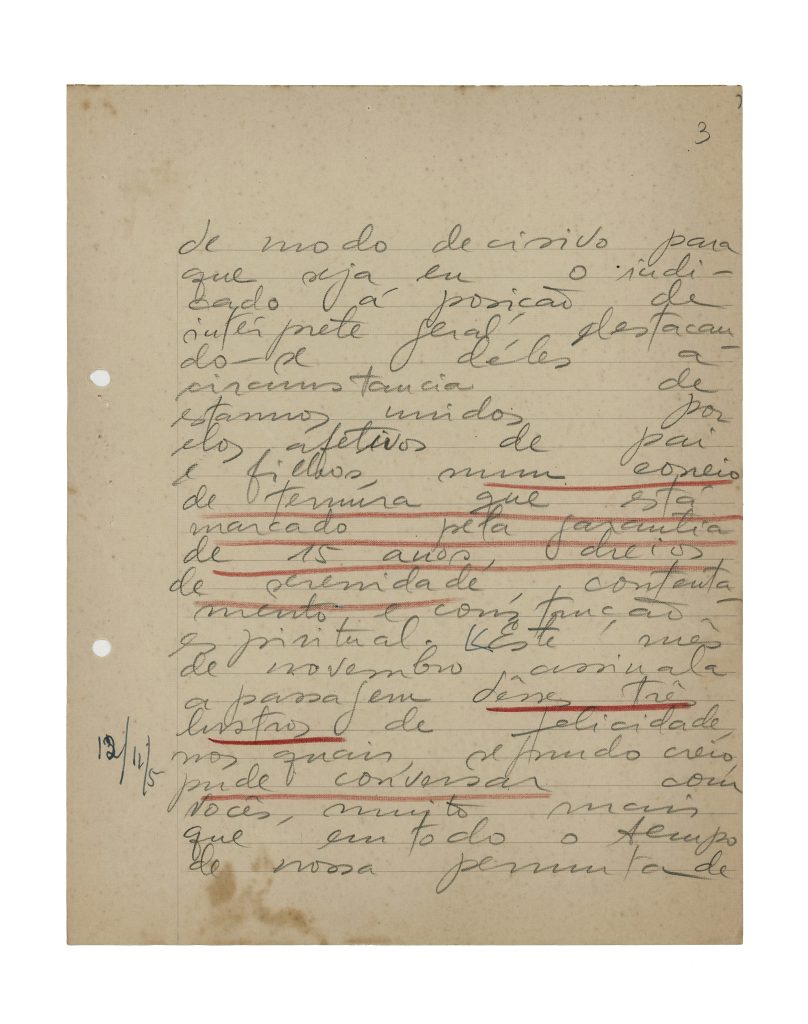 3
de modo decisivo para
que seja eu o indi-
cado á posição de
intérprete geral, destacan
do-se dêles a
circumstancia de
estarmos unidos por
elos afetivos de pai
e filhos, num
de ternura que está
marcado pela garantia
de 15 anos, cheios
de serenidade, contenta-
mento e construção
espiritual. Este mês
de novembro assinala
a passagem dêsses três
lustros de felicidade,
nos quais, segundo creio,
pude conversar com
vocês, muito mais
que em todo o tempo
de nossa permuta de
12/11/5